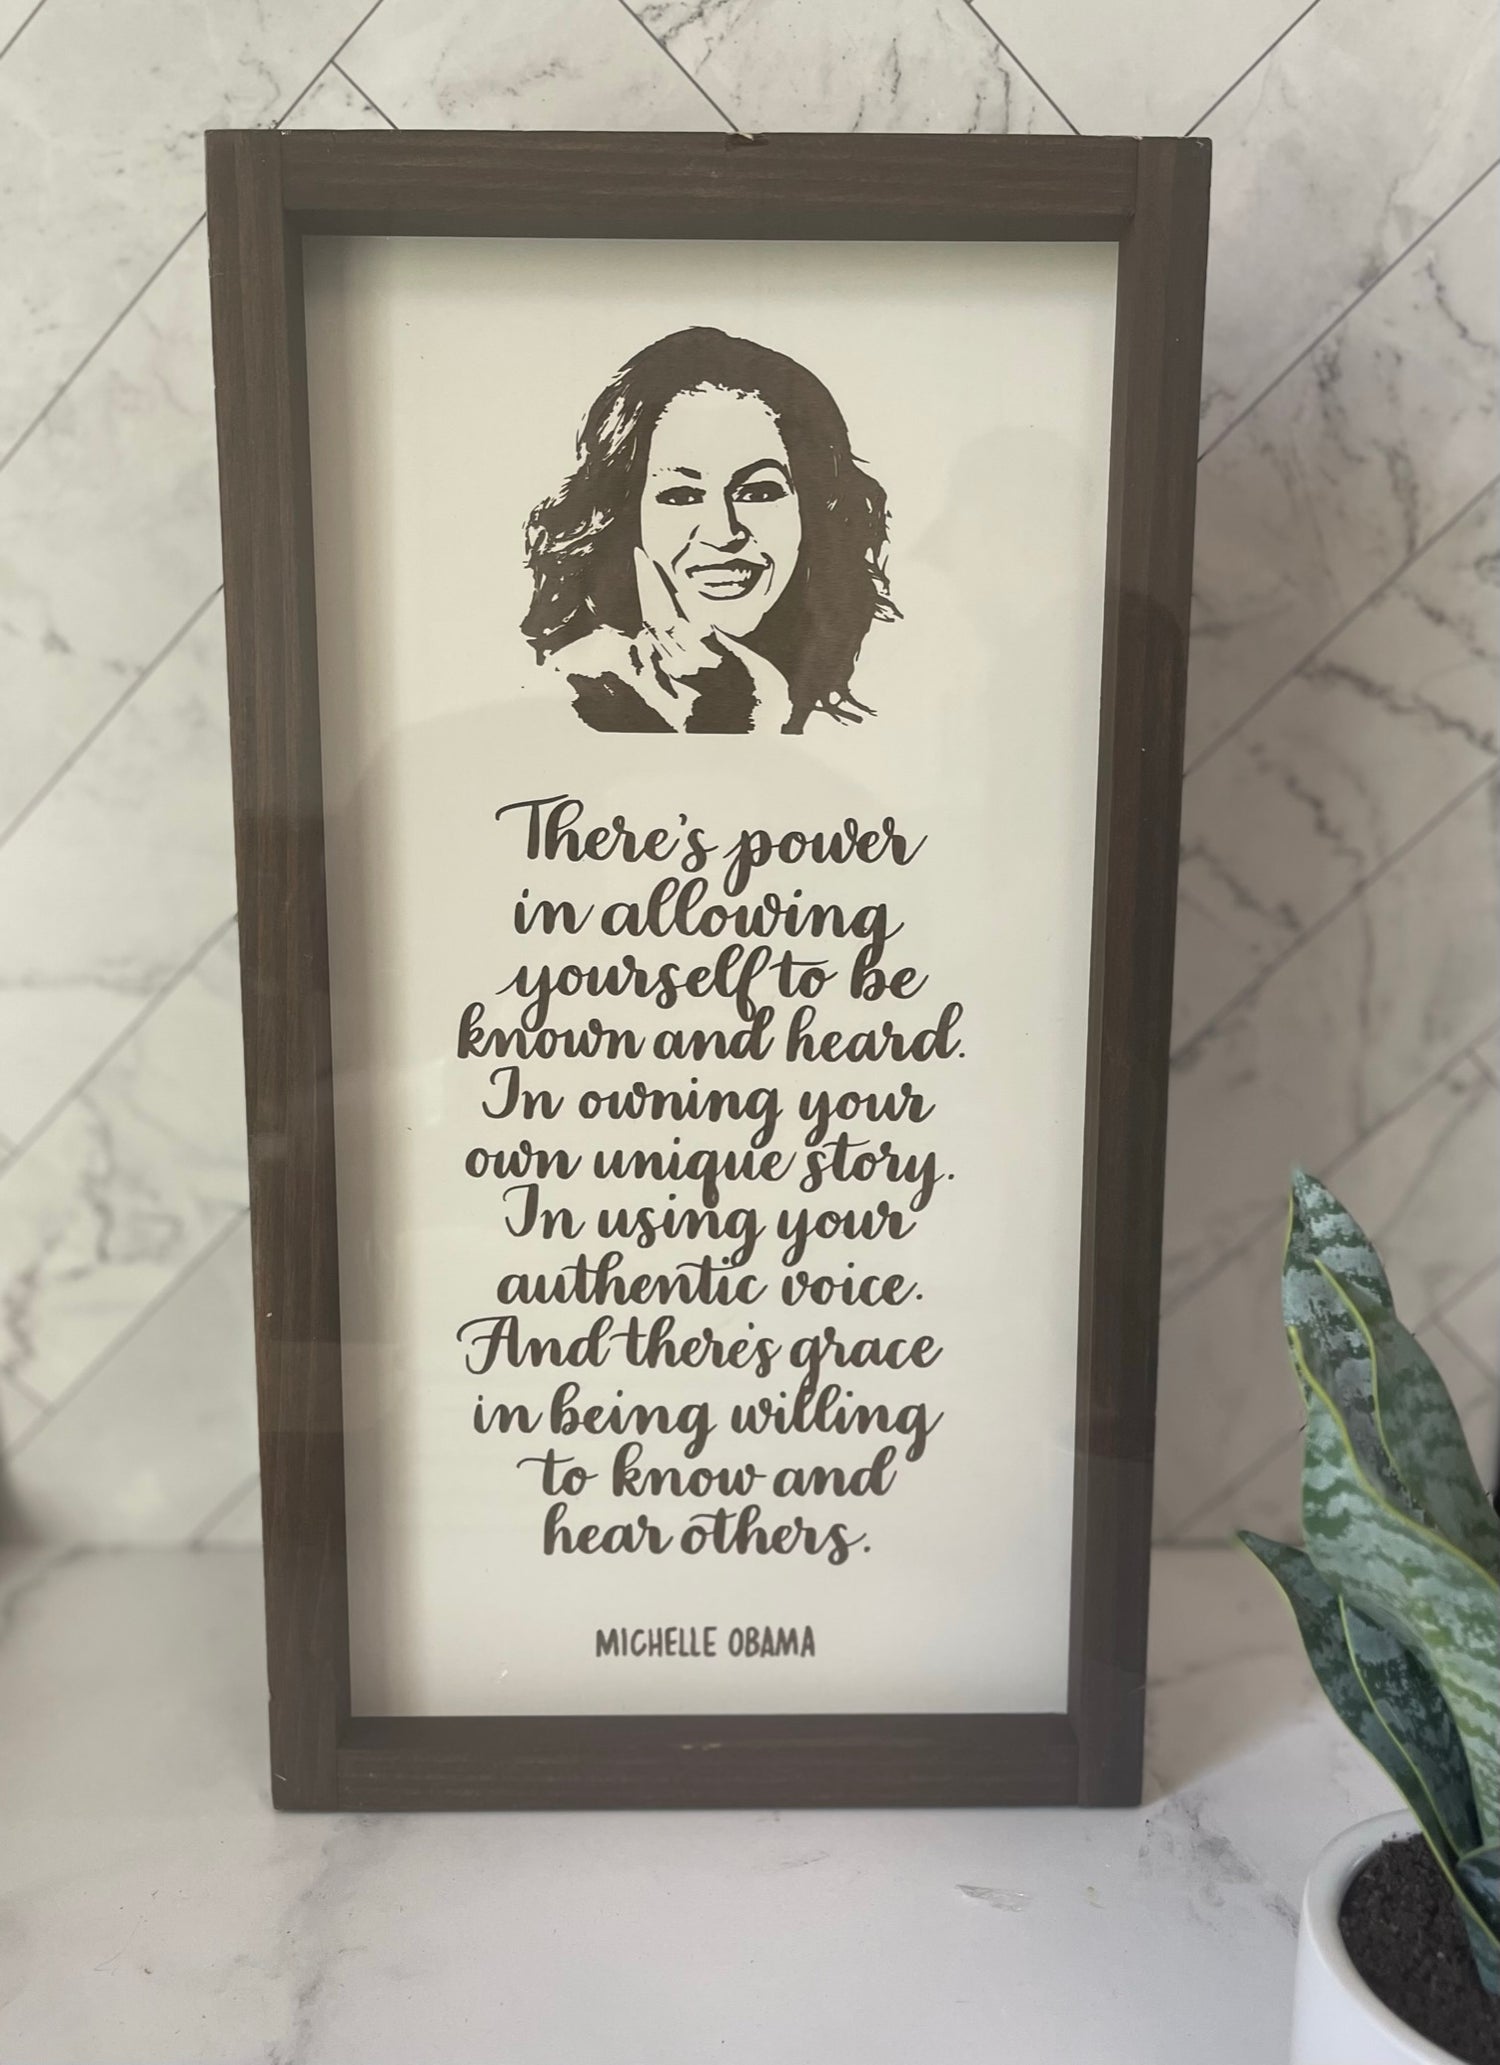 There's power
in allowing
yourself to be
known and heard.
In owning your
own unique story.
In using your
authentic voice.
And there's grace
in being willing
to know and
hear others.
MICHELLE OBAMA